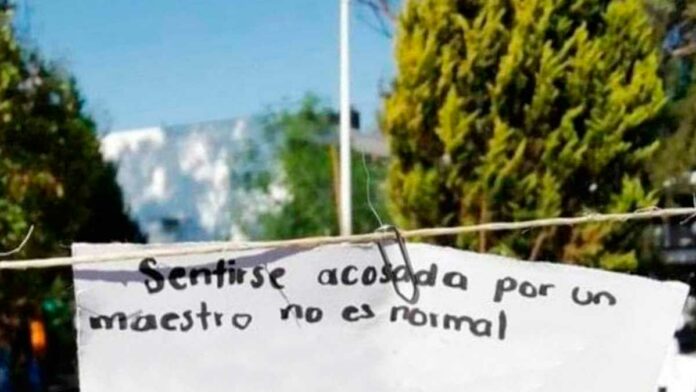 Sentirse acosada por un
maestro no es normal